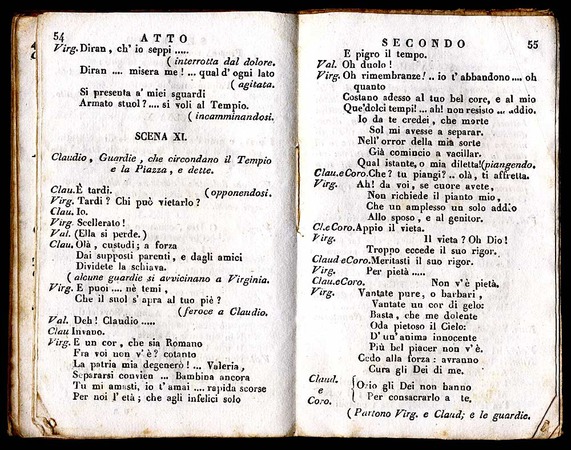 54
ATTO
Virg. Diran, ch' io seppi .....
( interrotta dal dolore.
Diran .... misera me! ... qual d' ogni lato
( agitata.
Si presenta a' miei sguardi
Armato stuol?.... si voli al Tempio.
( incamminandosi.
SCENA XI.
Claudio, Guardie, che circondano il Tempio
e la Piazza, e dette.
Clau. È tardi. ( opponendosi.
Virg. Tardi? Chi può vietarlo?
Clau. Io.
Virg. Scellerato!
Val. (Ella si perde.)
Clau. Olà, custodi; a forza
Dai supposti parenti, e dagli amici
Dividete la schiava.
( alcune guardie si avvicinano a Virginia.
Virg. E puoi.... nè temi,
Che il suol s'apra al tuo piè?
( feroce a Claudio.
Val. Deh! Claudio .....
Clau Invano.
Virg. E un cor, che sia Romano
Fra voi non v'è? cotanto
La patria mia degenerò! ... Valeria,
Separarsi convien ... Bambina ancora
Tu mi amasti, io t' amai .... rapida scorse
Per noi l' età; che agli infelici solo
SECONDO
55
E pigro il tempo.
Val. Oh duolo!
Virg. Oh rimembranze! .. io t' abbandono.... oh
quanto
Costano adesso al tuo bel core, e al mio
Que'dolci tempi! ... ah! non resisto ... addio.
Io da te credei, che morte
Sol mi avesse a separar.
Nell' orror della mia sorte
Già comincio a vacillar.
Qual istante, o mia diletta!(piangendo.
Clau.eCoro.Che? tu piangi? .. olà, ti affretta.
Virg. Ah! da voi, se cuore avete,
Non richiede il pianto mio,
Che un amplesso un solo addio
Allo sposo, e al genitor.
Cl.eCoro.Appio il vieta.
Virg. Il vieta? Oh Dio!
Troppo eccede il suo rigor.
Claud eCoro.Meritasti il suo rigor.
Virg. Per pietà .....
Clau.eCoro. Non v'è pietà.
Virg. Vantate pure, o barbari,
Vantate un cor di gelo:
Basta, che me dolente
Oda pietoso il Cielo:
D' un'anima innocente
Più bel piacer non v'è.
Cedo alla forza: avranno
Cura gli Dei di me.
Claud.
e
Coro.
{ Odio gli Dei non hanno
Per consacrarlo a te.
( Partono Virg. e Claud; e le guardie.